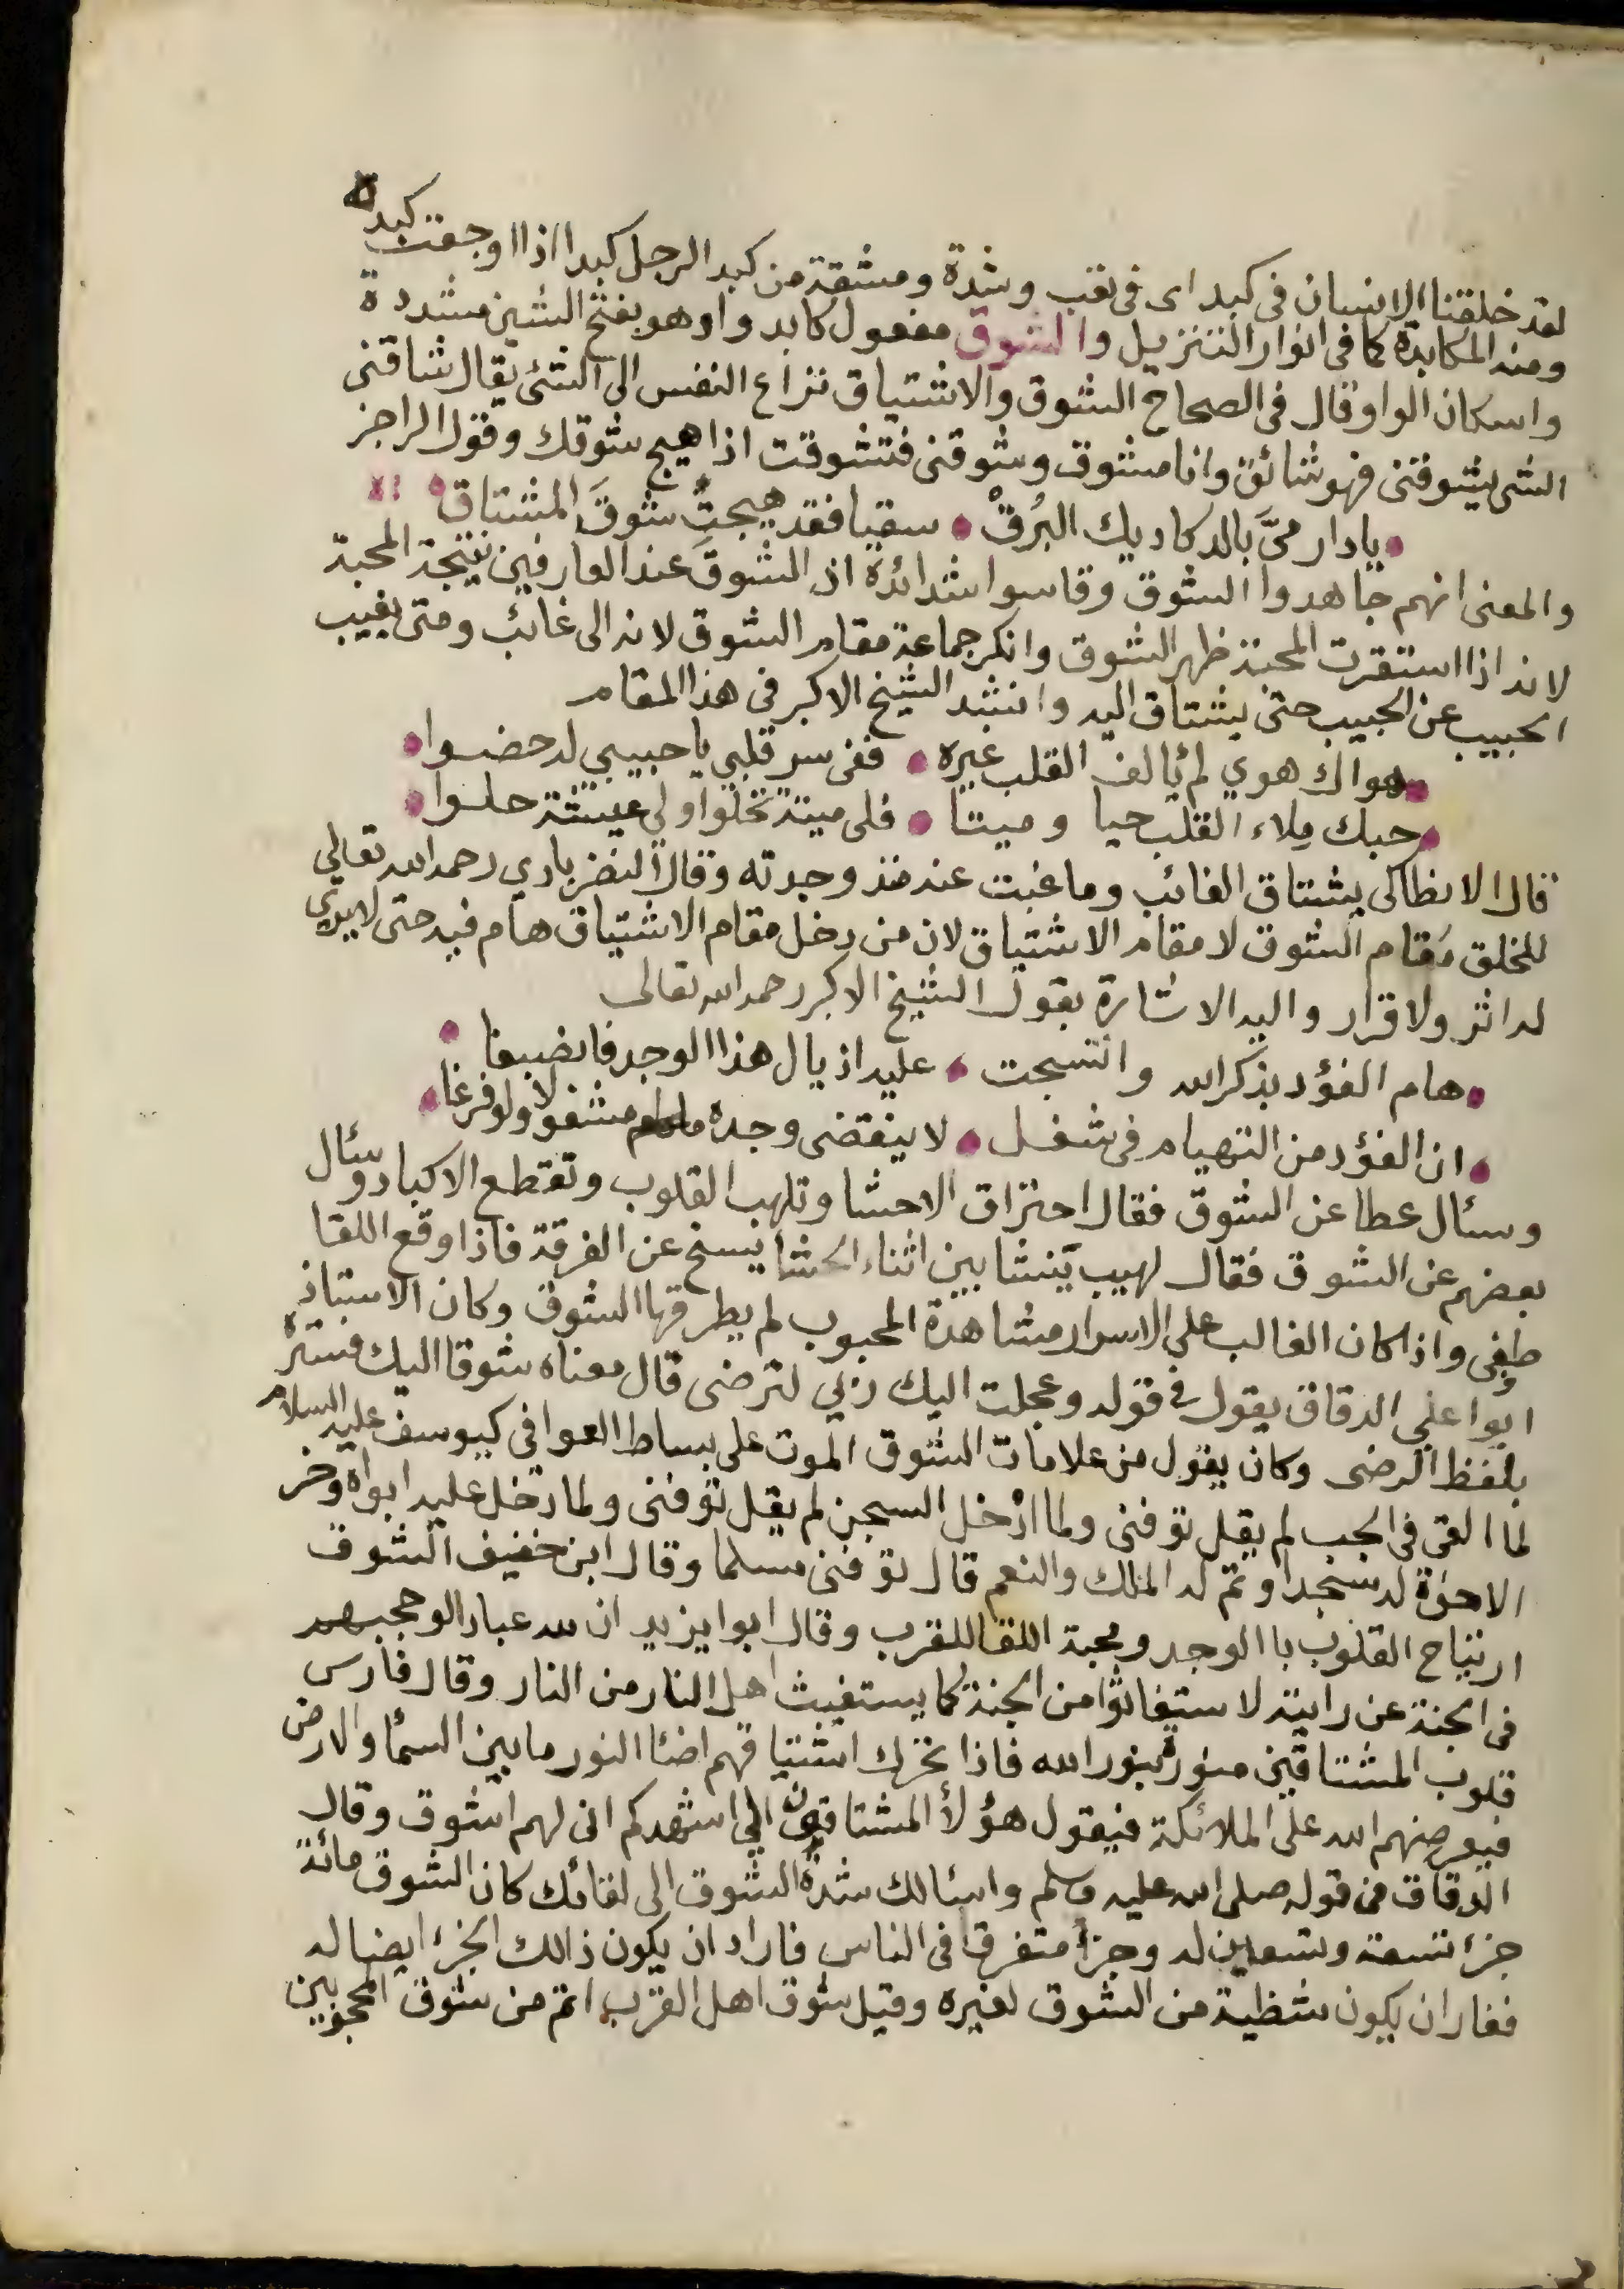 لقد خلقنا الانسان فى كبد اى فى تعب وشدة ومشقة من كبد الرجل كبدا اذا اوجعت كبده
ومنه المكابدة كما فى انوار التنزيل والشوق مفعول كابد واو هو بفتح الشين مشددة
واسكان الواو قال فى الصحاح الشوق والاشتياق نزاع النفس الى الشئ يقال شاقنى
الشى يشوقنى فهو شائق وانا مشوق وشوقنى فتشوقت اذا هيج شوقك وقول الراجز
يا دار مىَّ بالدكاديك البُرقْ سقيا فقد هيجتِ شوقَ المشتاق
والمعنى انهم جاهدوا الشوق وقاسوا شدائدة اذ الشوق عند العارفين نتيجة المحبة
لانه اذا استقرت المحبة ظهر الشوق وانكر جماعة مقام الشوق لانه الى غائب ومتى يغيب
الحبيب عن الحبيب حتى يشتاق اليه وانشد الشيخ الاكبر فى هذا المقام
هواك هوي لم يألف القلب غيره ففى سر قلبي يا حبيبي له حضوا
حبك ملاء القلب حيا وميتا فلى ميتة تحلوا ولي عيشة حلوا
قال الانطاكى يشتاق الغائب وما غبت عنه منذ وجدته وقال النضربادي رحمه الله تعالى
للخلق مَقام الشوق لا مقام الاشتياق لان من دخل مقام الاشتياق هام فيه حتى لا يرى
له اثر ولا قرار واليه الاشارة بقول الشيخ الاكبر رحمه الله تعالى
هام الفؤد بذكر الله وانتسجت عليه اذيال هذا الوجد فانصبغا
ان الفؤد من التهيام فى شغل لا ينقضى وجده مشغولا ولو فرغا
وسئال عطا عن الشوق فقال احتراق الاحشا وتلهب القلوب وتقطع الاكباد وسئال
بعضهم عن الشوق فقال لهيب ينشا بين اثناء الحشا يسنح عن الفرقة فاذا وقع اللقا
طفى واذا كان الغالب على الاسرار مشاهدة المحبوب لم يطرقها الشوق وكان الاستباذ
ابوا على الدقاق يقول فى قوله وعجلت اليك ربي لترضى قال معناه شوقا اليك فستره
بلفظ الرضى وكان يقول من علامات الشوق الموت على بساط العوافى كيوسف عليه السلام
لما القى فى الجب لم يقل توفنى ولما ادْخل السجن لم يقل توفنى ولما دخل عليه ابواه وخر
الاخوة له سجدا وتم له الملك والنعم قال توفنى مسلما وقال ابن خفيف الشوق
ارتياح القلوب باالوجد ومحبة اللقا للقرب وقال ابوا يزيد ان لله عبادا لو حجبهم
فى الجنة عن رايته لاستغاثوا من الجنة كما يستغيث اهل النار من النار وقال فارس
قلوب المشتاقين منورة بنور الله فاذا تحرك اشتياقهم اضئا النور ما بين السمٔا والارض
فيعرضهم الله على الملائكة فيقول هؤلأ المشتاقون الي اشهدكم انى لهم اشوق وقال
الدقاق من قوله صلى الله عليه وسلم واسئالك شدة الشوق الى لقائك كان الشوق مائة
جزء تسعة وتسعين له وجزأ متفرقا فى الناس فاراد ان يكون ذالك الجزء ايضا له
فغار ان يكون شظية من الشوق لغيره وقيل شوق اهل القرب اتم من شوق المحجوبين